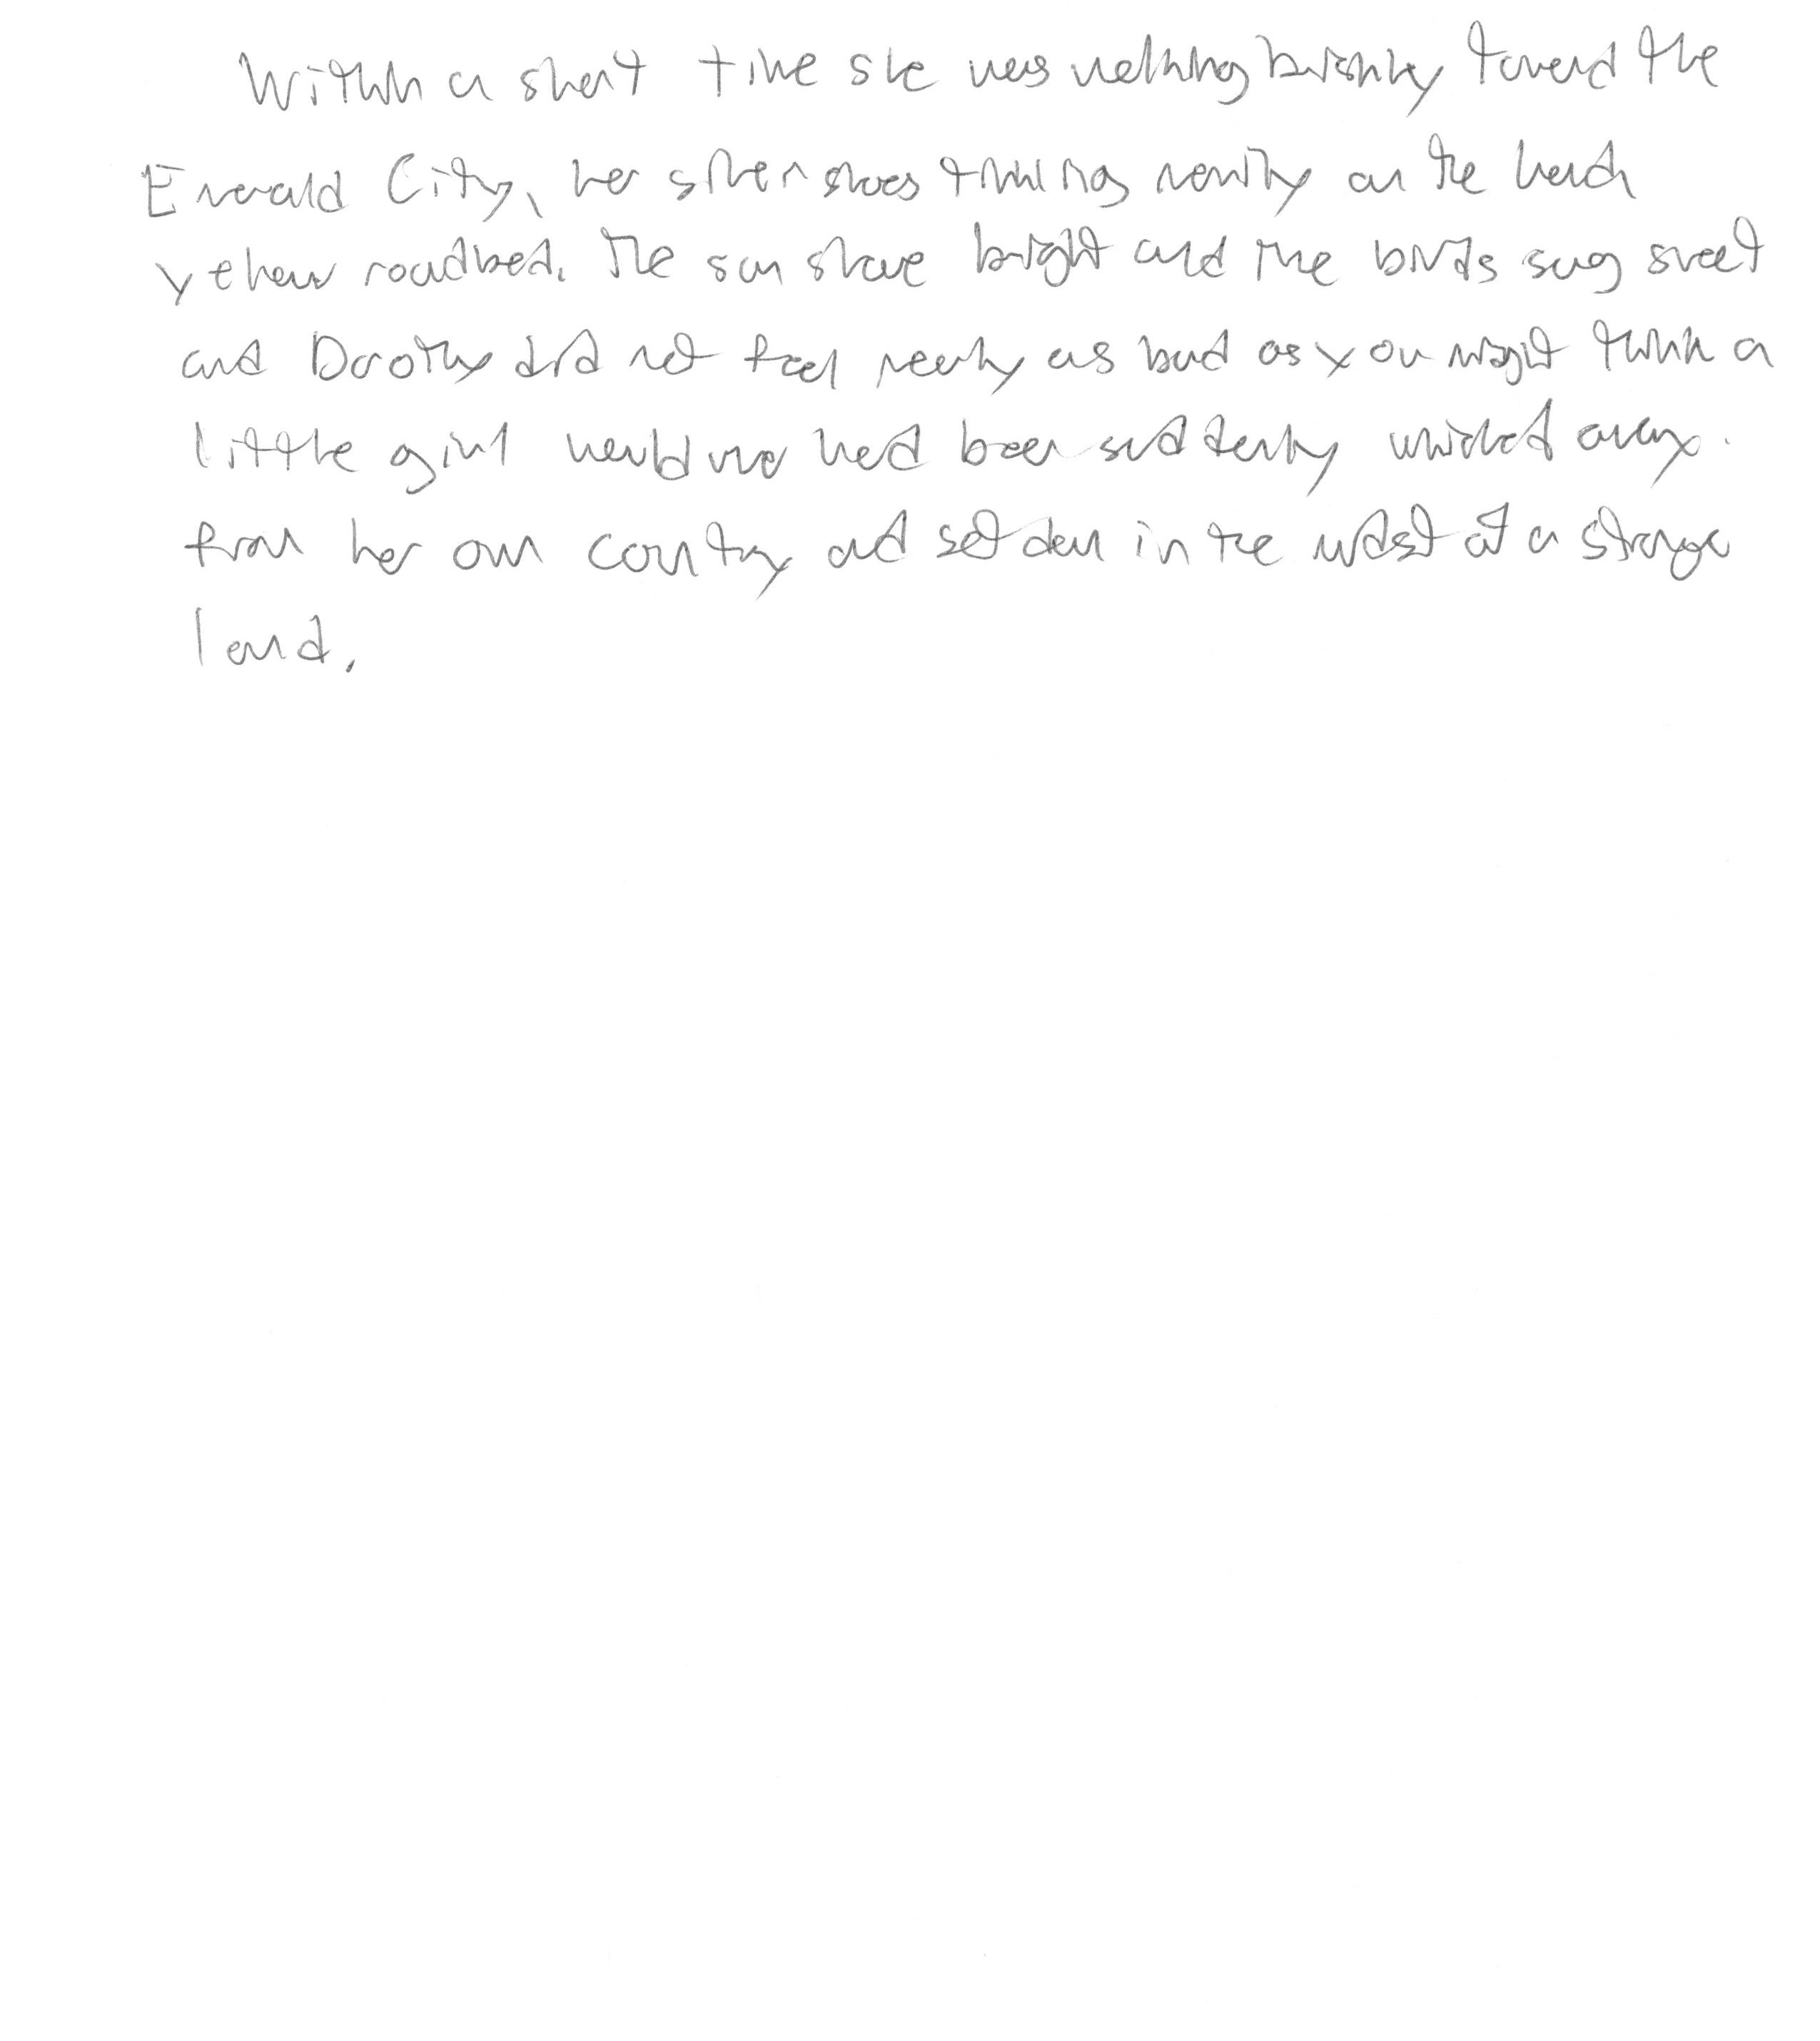 Within a short time she was walking briskly toward the
Emerald City, her silver shoes tinkling merrily on the hard
yellow roadbed. The sun shone bright and the birds sang sweet
and Dorothy did not feel nearly as bad as you might think a
little girl would who had been suddenly whisked away
from her own country and set down in the midst of a strange
land.